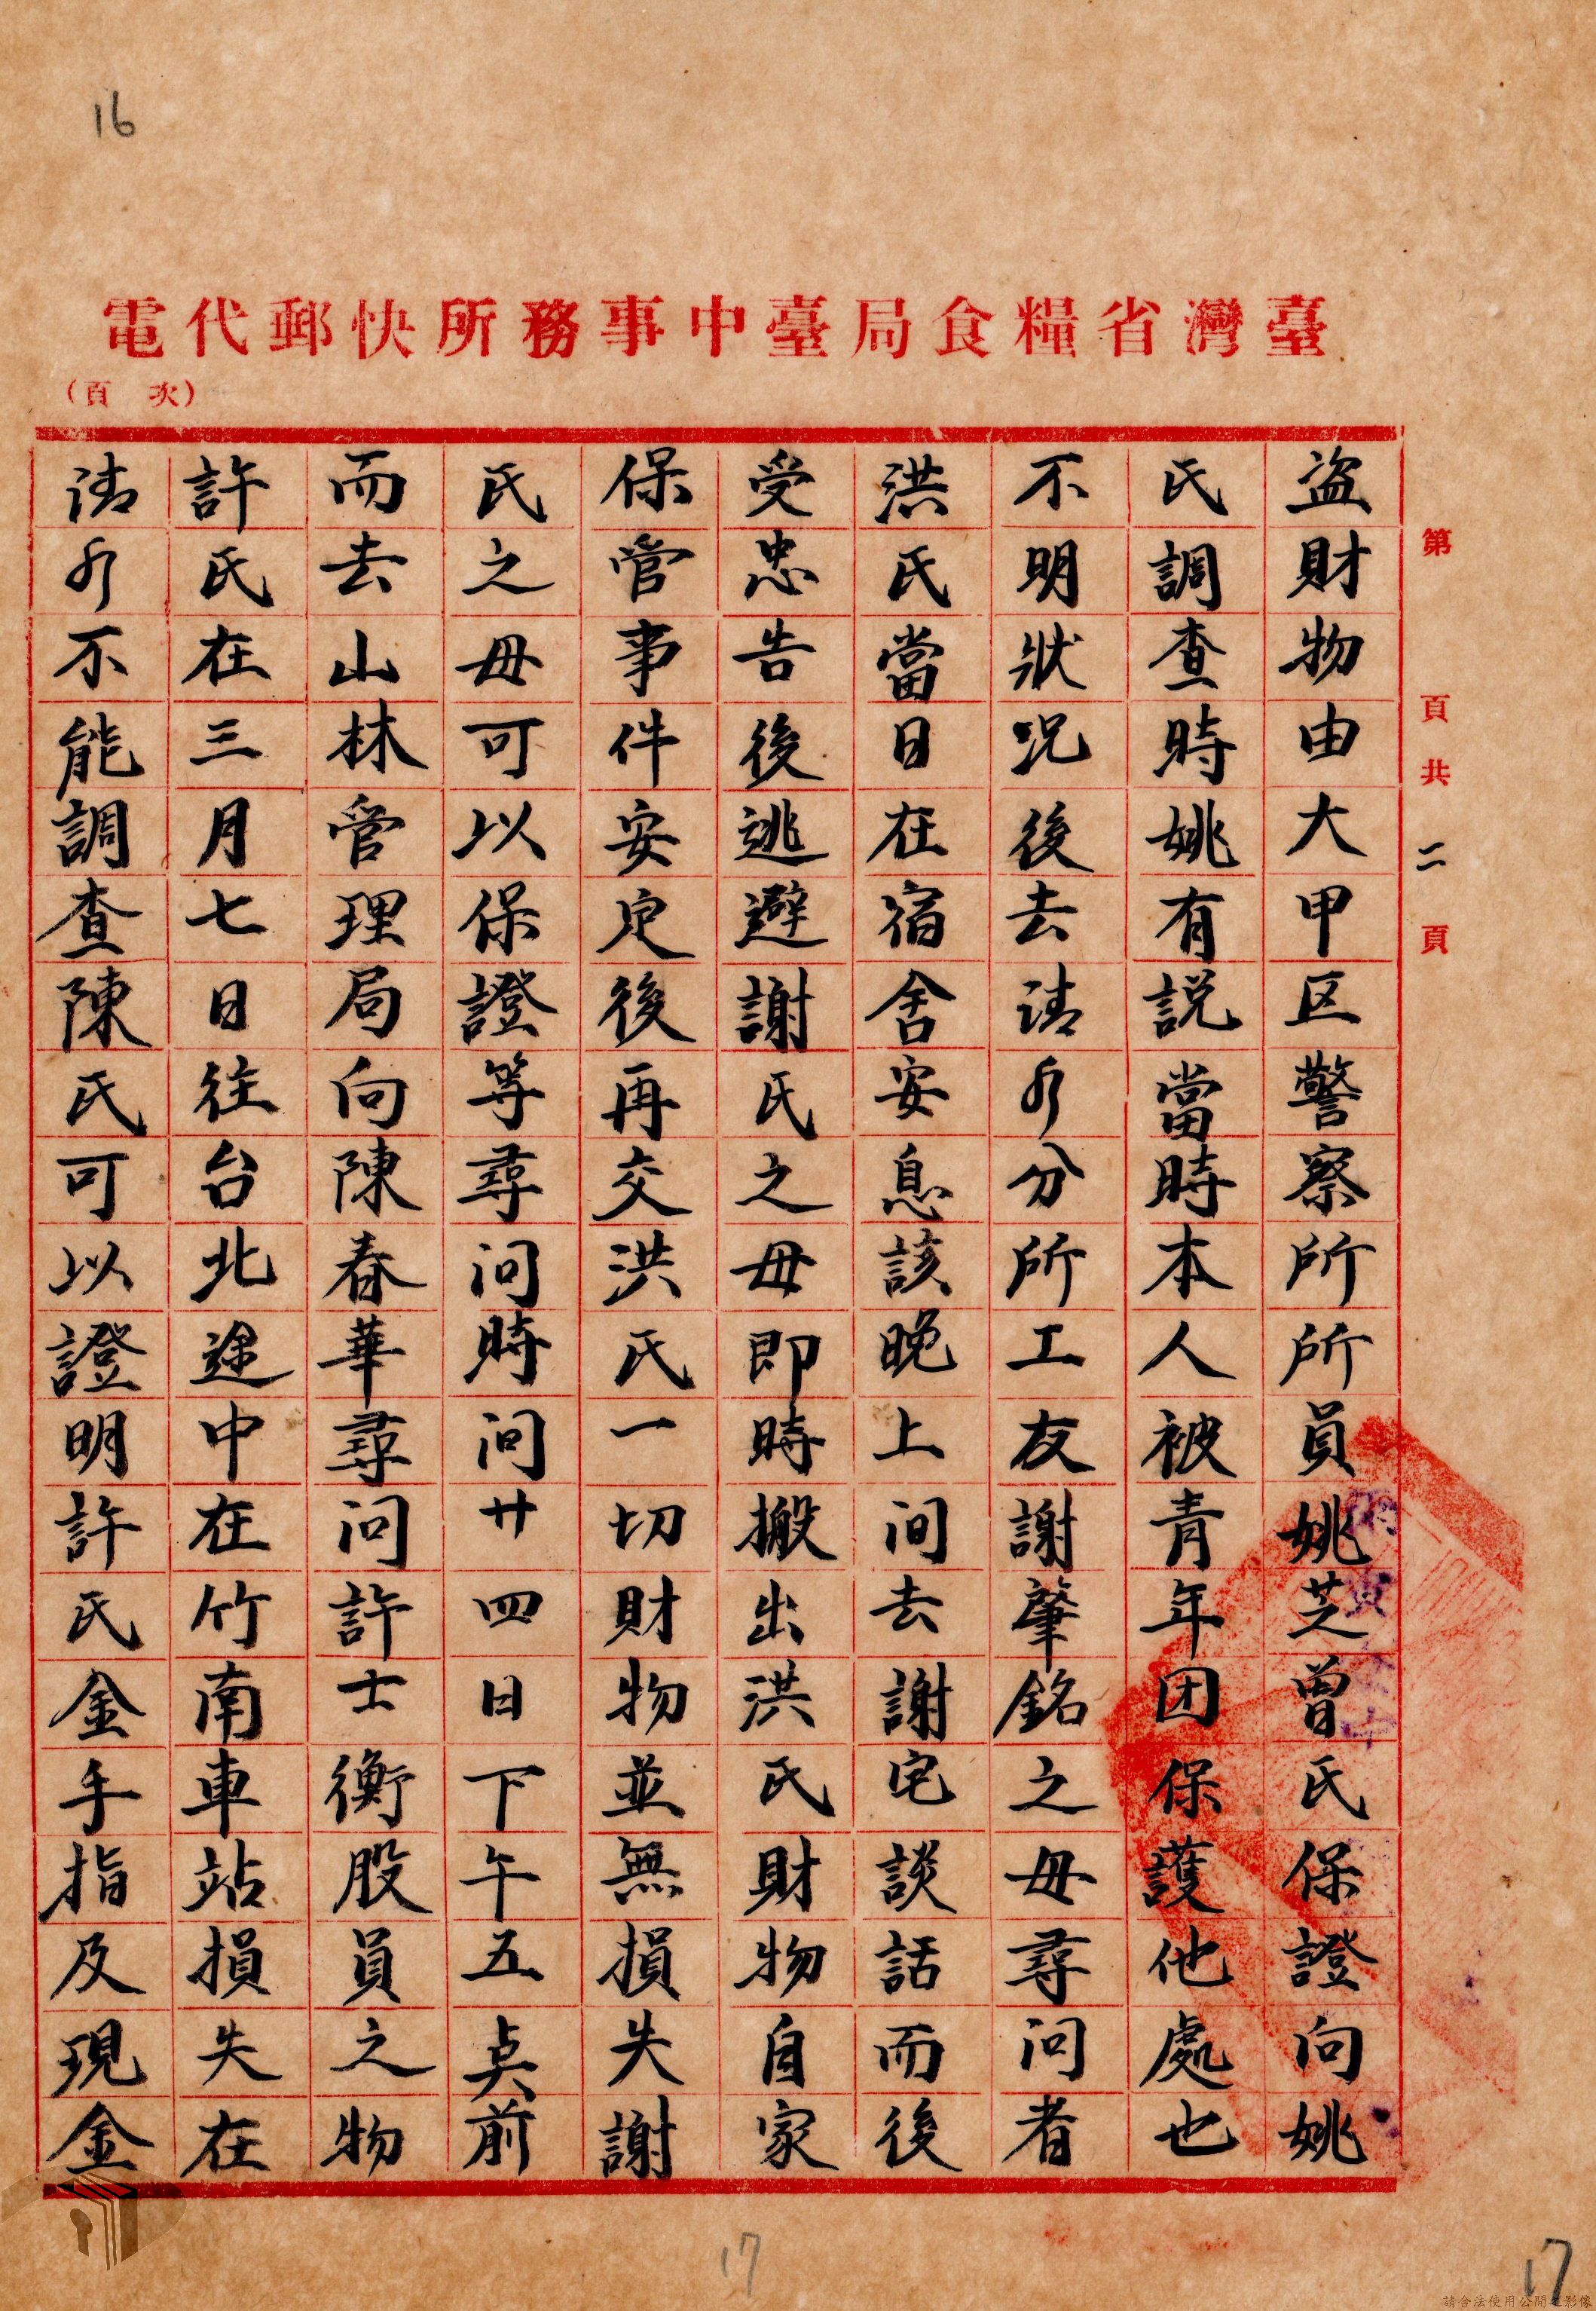 16
臺灣省糧食局臺中事務所快郵代電
（頁次）
第　頁共二頁
盜財物由大甲区警察所所員姚芝曾氏保證向姚
氏調查時姚有説當時本人被青年团保護他處也
不明狀況後去清水分所工友謝肇銘之母尋问者
洪氏當日在宿舍安息該晚上间去謝宅談話而後
受忠告後逃避謝氏之母即時搬出洪氏財物自家
保管事件安定後再交洪氏一切財物並無損失謝
氏之母可以保證等尋问時问廿四日下午五点前
而去山林管理局向陳春華尋问許士衡股員之物
許氏在三月七日往台北途中在竹南車站損失在
清水不能調查陳氏可以證明許氏金手指及現金
17
17
請合法使用公開之影像